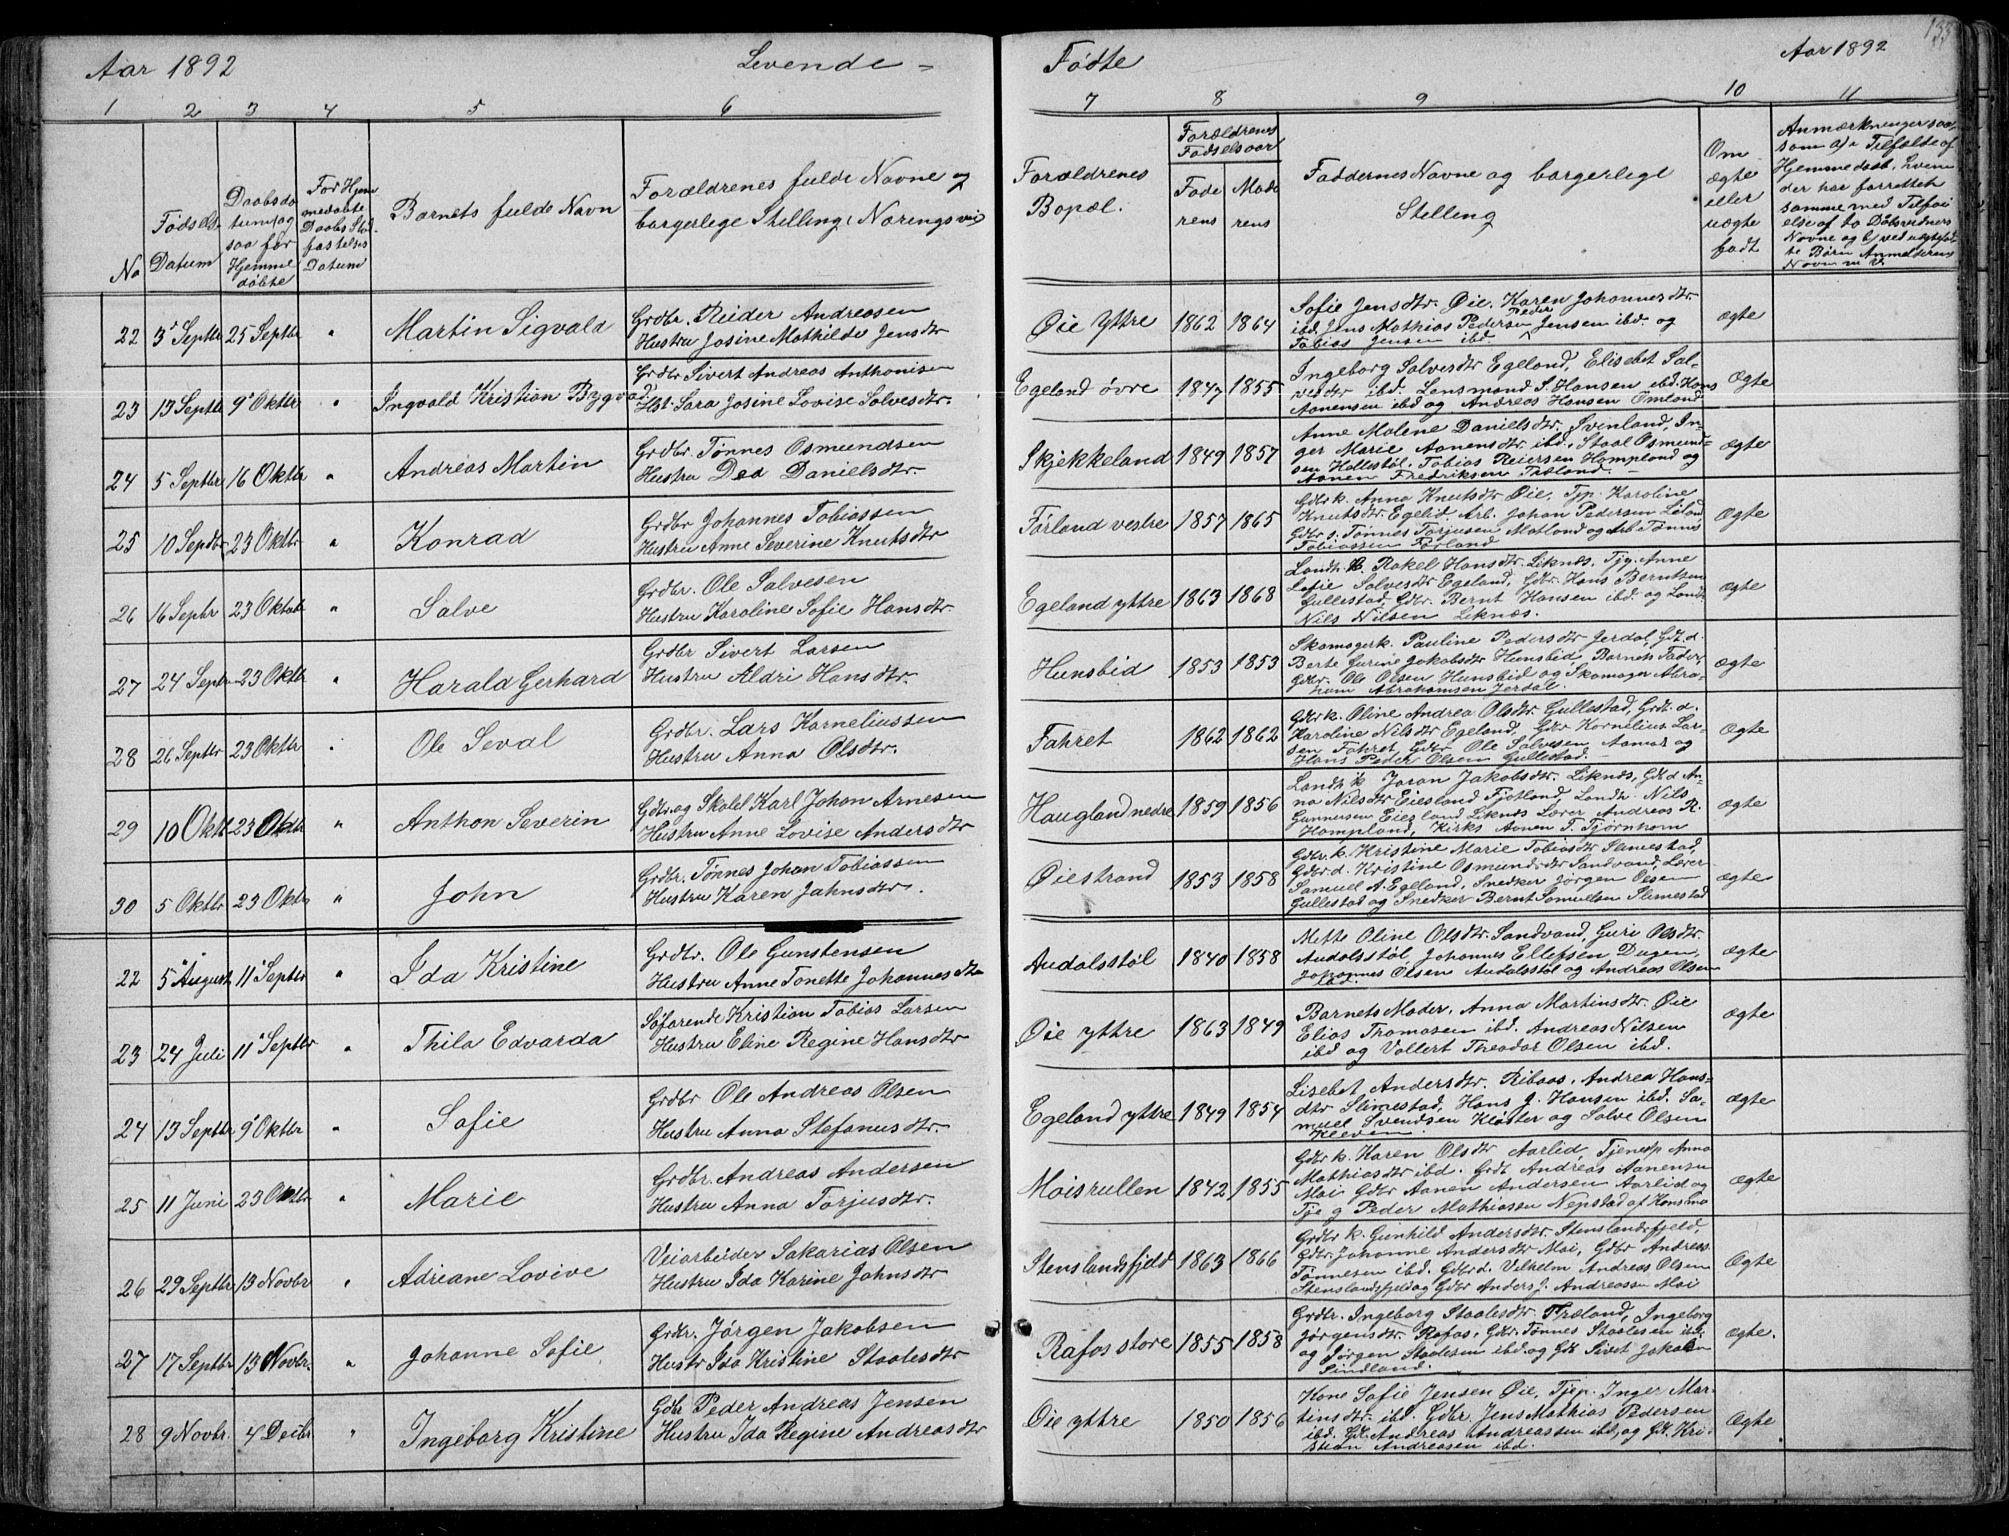 Aar 1892 Levende - Fødte Aar 1892
1 2 3 4 5 6 7 8 9 10 11
No
Fødsels Datum
Daabsda
tum, og
saa for
Hjemme
døbte
For Hjem
medøbte
Daabs Stad
fæstelses
Datum
Barnets fulde Navn
Forældrenes fulde Navne og
borgerlige Stilling, Næringsvei
Forældrenes
Bopæl.
Forældrenes
Fødselsaar
Fade
rens
Mode
rens
Faddernes Navne og borgerlige
Stilling
Om
ægte
eller
uægte
født
Anmærkninger saa-
som a) i Tilfælde af
Hjemmedaab, hvem
der har forrettet
samme med Tilføi
else af to Daabsvidners
Navne og b) ved uægtefød
te Børn Anmelderens
Navn m. v.
22 3' Septbr 25 Septbr " Martin Sigvald
Grdbr. Reider Andreasen
Hustru Josine Mathilde Jensdtr
Øie Yttre 1862 1864
Sofie Jensdtr. Øie. Karen Johannesdtr.
ibd. Jens Mathias Pedersen Peder Jensen ibd. og
Tobias Jensen ibd
Ægte
23 13 Septbr 9' Oktbr " Ingvald Kristian Bygvad
Grdbr Sivert Andreas Anthonisen
Hst. Sara Josine Lovise Salvesdtr.
Egeland øvre 1847 1855
Ingeborg Salvesdtr Egeland, Elisebet Sal-
vesdtr ibd. Lensmand S. Hansen ibd. Hans
Aanensen ibd og Andreas Hansen Omland
Ægte
24 5 Septbr 16 Oktbr " Andreas Martin
Grdbr. Tønnes Osmundsen
Hustru Dea Danielsdtr.
Skjekkeland 1849 1857
Anne Malene Danielsdtr. Svenland, In-
ger Marie Aanensdtr. ibd. Staal Osmund-
sen Hallestøl. Tobias Reiersen Hompland og
Aanen Fredriksen Træland.
Ægte
25 10 Septbr 23 Oktbr " Konrad
Grdbr Johannes Tobiassen
Hustru Anne Severine Knutsdtr
Førland vestre 1857 1865
Gdbr k. Anna Knutsdtr Øie, Tjp. Karoline
Knutsdtr. Egelid. Arb. Johan Pedersen Liland
Gdbr s. Tønnes Torjusen Motland og Arb. Tønnes
Tobiassen Førland
Ægte
26 16 Septbr 23 Oktob " Salve
Grdbr. Ole Salvesen
Hustru Karoline Sofie Hansdtr.
Egeland yttre 1863 1868
Landh. K. Rakel Hansdtr. Liknæs, Tjg. Anne
Sofie Salvesdtr Egeland, Gdbr. Hans Berntsen
Gullestad, Gdbr. Bernt Hansen ibd. og Land.
Nils Nilsen Liknæs.
Ægte
27 24 Septbr 23 Oktbr " Harald Gerhard
Grdbr Sivert Larsen
Hustru Aldri Hansdtr.
Hunsbid 1853 1853
Skomagerk. Pauline Pedersdtr Jerdal, Gdt. d.
Berte Gurine Jakobsdtr Hunsbid, Barnets Fader,
Gdbr. Ole Olsen Hunsbid og Skomager Abra-
ham Abrahamsen Jerdal.
Ægte
28 26 Septbr 23 Oktbr " Ole Seval
Grdbr. Lars Korneliussen
Hustru Anna Olsdtr.
Fahret 1862 1862
Gdbr k. Oline Andrea Olsdtr. Gullestad, Grdt. d.
Karoline Nilsdtr Egeland, Gdbr Kornelius Lar-
sen Fahret, Gdbr Ole Salvesen Aamot og
Hans Peder Olsen Gullestad.
Ægte
29 10 Oktb 23 Oktbr " Anthon Severin
Gdbr. og Skolel Karl Johan Arnesen
Hustru Anne Lovise Andersdtr
Haugland nedre 1859 1856
Landh. k Joran Jakobsdtr. Liknæs, Gdt d An-
na Nilsdtr Eiesland Fjotland, Landh. Nils
Gunnusen Eiesland Liknæs Lærer Andreas R.
Hompland, Kirks Aanen T. Tjørnhom
Ægte
30 5 Oktbr 23 Oktbr " John
Grdbr. Tønnes Johan Tobiassen
Hustru Karen Jahnsdtr.
Øiestrand 1853 1858
Gdbr. k. Kristine Marie Tobiasdtr Slimestad,
Gdbr d. Kristine Osmundsdtr Sandvand, Lærer
Samuel A. Egeland, Snedker Jørgen Olsen
Gullestad og Snedker Bernt Samuelsen Slimestad
Ægte
22 5' August 11' Septbr " Ida Kristine
Grdbr. Ole Gunstensen
Hustru Anne Tonette Johannesdtr
Audalsstøl 1840 1858
Mette Oline Olsdtr. Sandvand, Guri Olsdtr.
Audalsstøl, Johannes Ellefsen Dugan,
Johannes Olsen Audalsstøl og Andreas Olsen
ibd.
Ægte
23 24 Juli 11' Septbr " Thila Edvarda
Søfarende Kristian Tobias Larsen
Hustru Eline Regine Hansdtr
Øie yttre 1863 1849
Barnets Moder, Anna Martinsdtr. Øie
Elias Tromasen ibd. Andreas Nilsen
ibd og Vollert Theodor Olsen ibd.
Ægte
24 13 Septbr 9' Oktbr " Sofie
Grdbr Ole Andreas Olsen
Hustru Anna Stefanusdtr.
Egeland yttre 1849 1854
Lisebet Andersdtr. Ribaas, Andrea Hans-
dtr Slimestad, Hans J. Hansen ibd. Sa-
muel Svendsen Kloster og Salve Olsen
Kleven
Ægte
25 11 Juni 23 Oktbr " Marie
Grdbr. Andreas Andersen
Hustru Anna Torjusdtr.
Moisrullen 1842 1855
Gdbr k. Karen Olsdtr Aarlid, Tjenep Anna
Mathiasdtr ibd. Grdt Andreas Aanensen
Moi Gdbr Aanen Andersen Aarlid og
Tje g Peder Mathiassen Nepstad af Hansmo
Ægte
26 29 Septbr 13 Novbr " Adriane Lovive
Veiarbeider Sakarias Olsen
Hustru Ida Karine Jahnsdtr
Stenslandsfjeld 1863 1866
Grdbr k. Gunhild Andersdtr. Stenslandsfjeld,
Gdbr. Johanne Andersdtr Moi, Gdbr Andreas
Tønnesen ibd. Gdbr d. Vilhelm Andreas Olsen
Stenslandsfjeld og Gdbr Anders J. Andreassen Moi
Ægte
27 17 Septbr 13 Novbr. " Johanne Sofie
Grdbr. Jørgen Jakobsen
Hustr Ida Kristine Staalesdtr
Rafos store 1855 1858
Grdbr. Ingeborg Staalesdtr. Træland, Ingeborg
Jørgensdtr. Rafos, Gdbr. Tønnes Staalesen ibd.
og Jørgen Staalesen ibd. og Gdt Sivet Jakobsen
Sindland.
Ægte.
28 9 Novbr. 4 Decbr. " Ingeborg Kristine
Gdbr Peder Andreas Jensen
Hustru Ida Regine Andreasdtr
Øie yttre 1850 1856
Kone Sofie Jensen Øie, Tjep. Inger Mar-
tinsdtr. ibd. Gdbr. Jens Mathias Pedersen
ibd. Gdt. Andreas Andreassen ibd. og Gdt. Kri-
stian Andreasen ibd.
Ægte